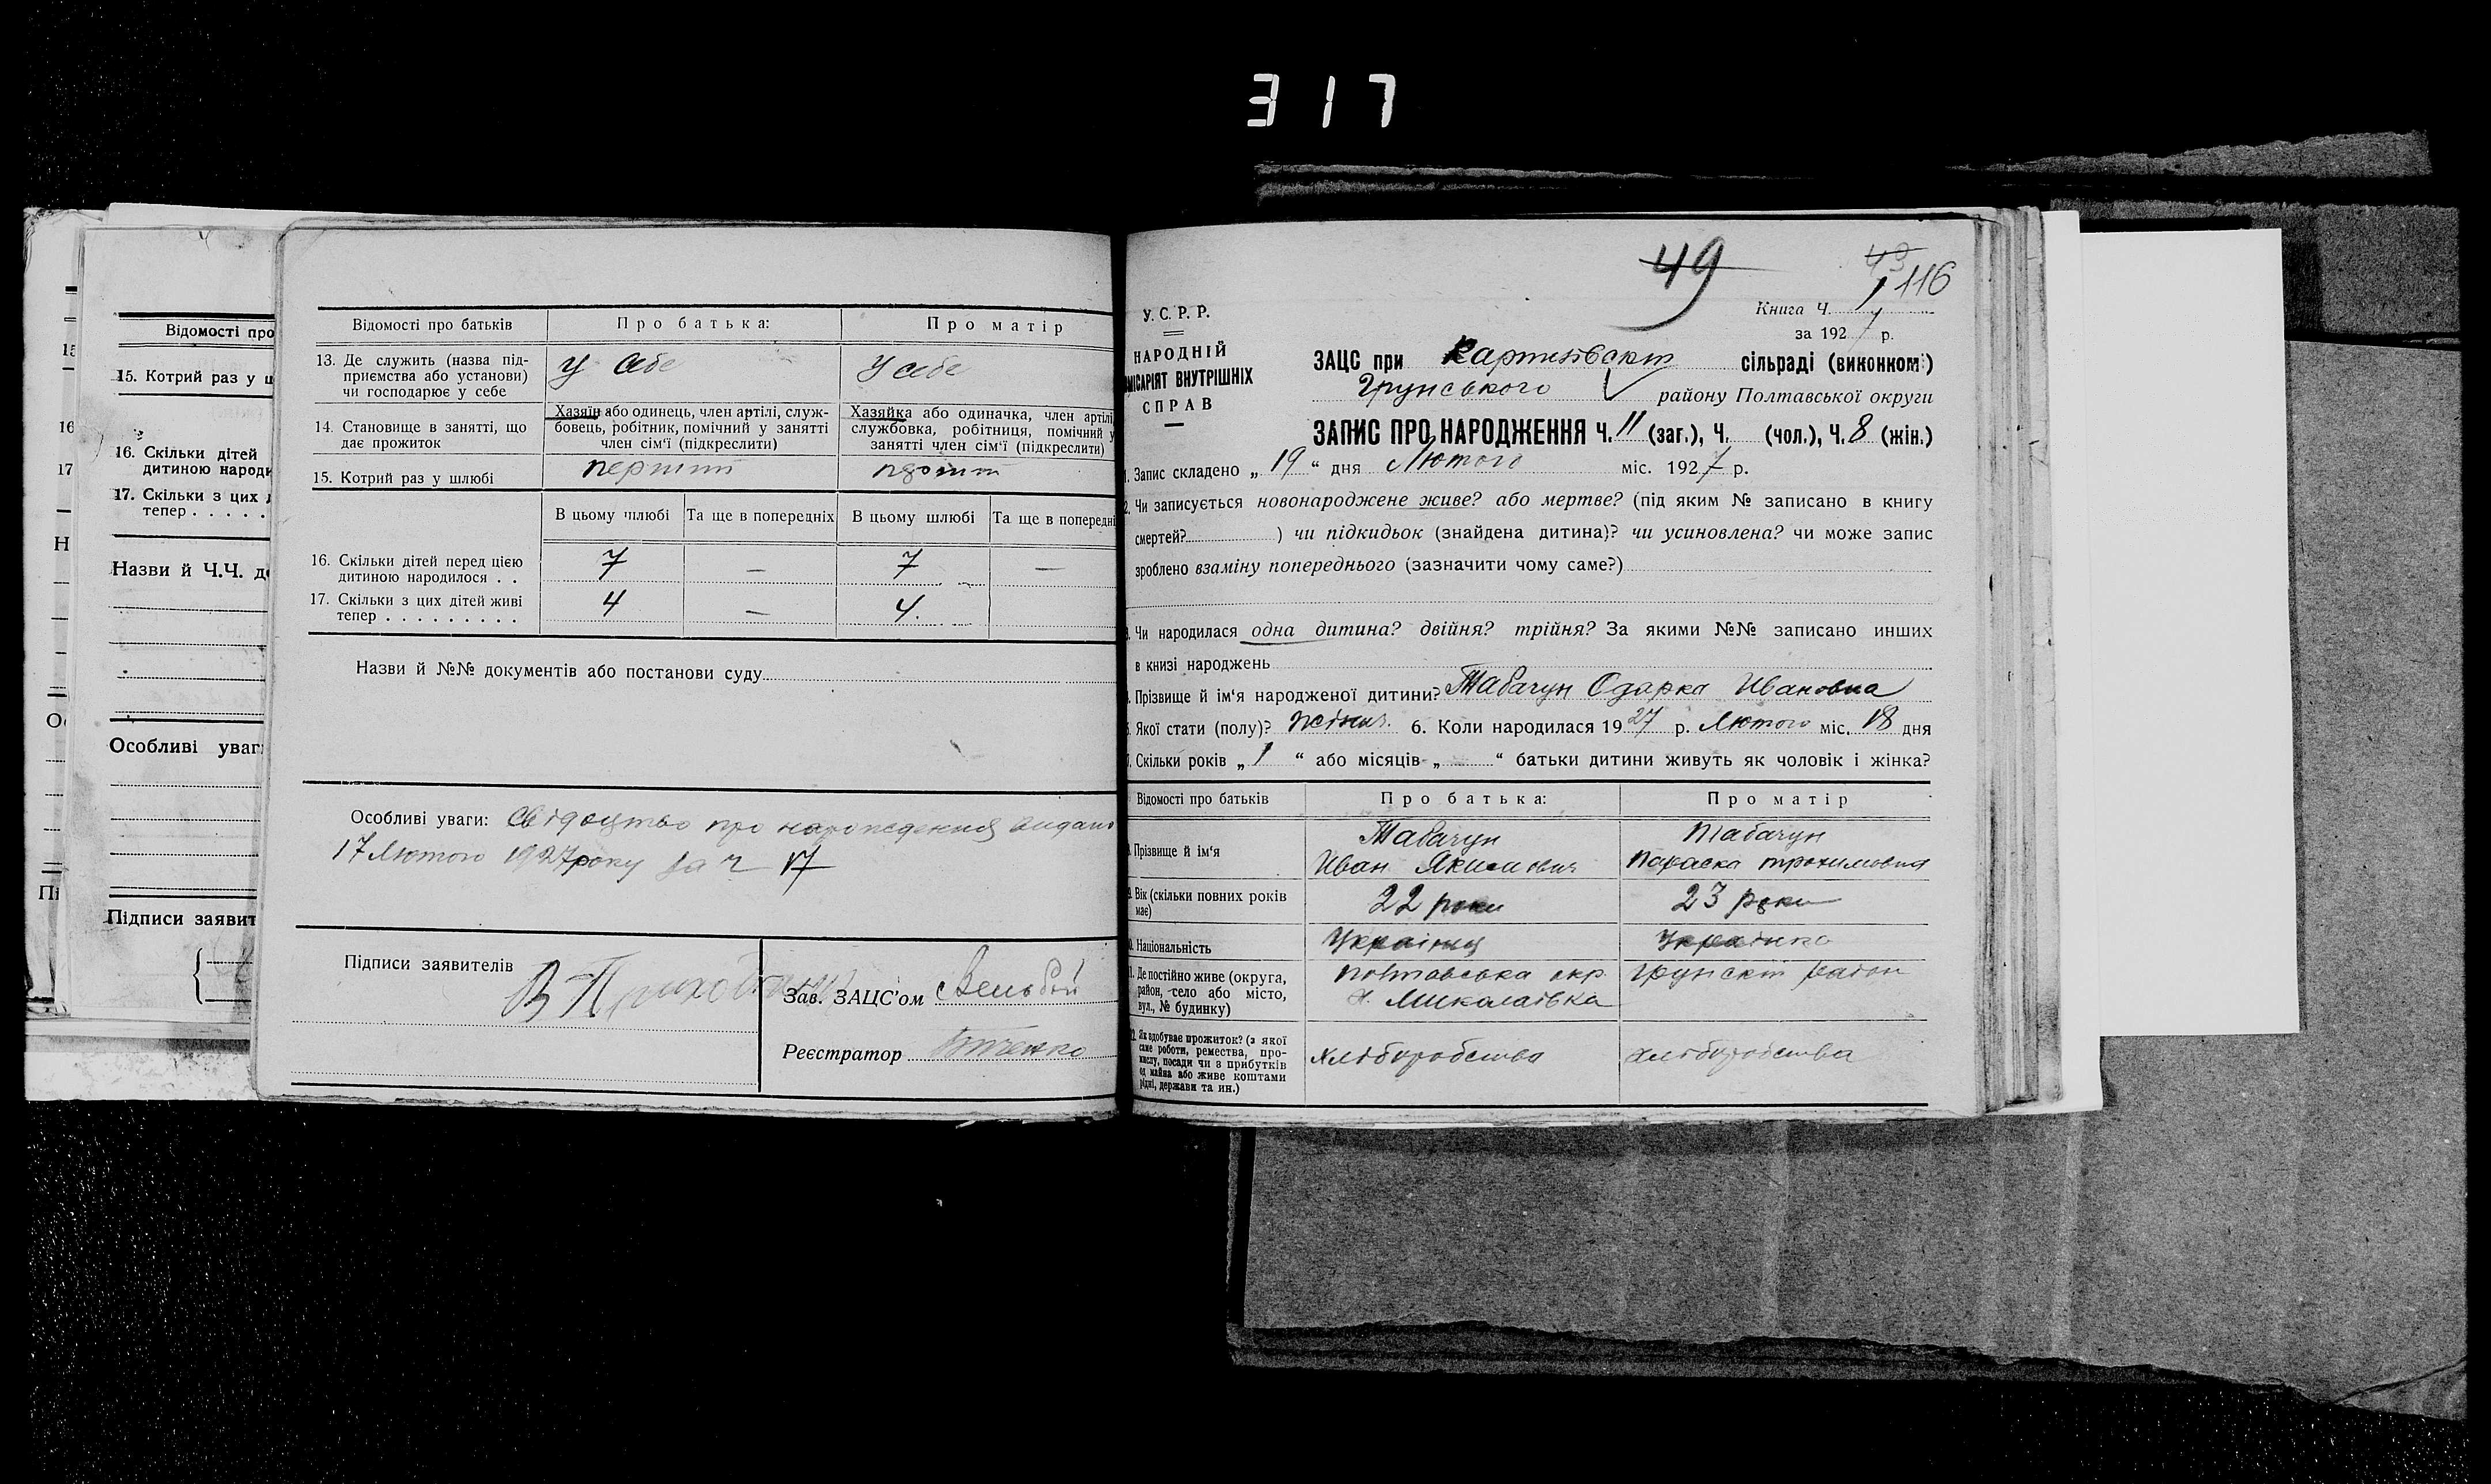 317
Відомості про
15. Котрий раз у ш
16. Скільки дітей
дитиною народи
17. Скільки з цих д
тепер . . . . .
Назви й Ч.Ч. до
Особливі уваг
Підписи заявит
Відомості про батьків Про батька: Про матір
13. Де служить (назва під-
приємства або установи)
чи господарює у себе
у себе у себе
14. Становище в занятті, що
дає прожиток
Хазяїн або одинець, член артілі, служ-
бовець, робітник, помічний у занятті
член сім'ї (підкреслити)
Хазяйка або одиначка, член артілі,
службовка, робітниця, помічний у
занятті член сім'ї (підкреслити)
15. Котрий раз у шлюбі перший
В цьому шлюбі Та ще в попередніх В цьому шлюбі Та ще в попередні
16. Скільки дітей перед цією
дитиною народилося . . 7 — 7 —
17. Скільки з цих дітей живі
тепер . . . . . . . . . 4 — 4.
Назви й №№ документів або постанови суду
Особливі уваги: Свідоцтво про народження видано
17 Лютого 1927 року за ч 17
Підписи заявителів
Зав. ЗАЦС'ом
Реєстратор
49
43
116
У. С. Р. Р.
НАРОДНІЙ
МІСАРІЯТ ВНУТРІШНІХ
СПРАВ
Книга Ч. 1
за 1927 р.
ЗАЦС при сільраді (виконком:)
Грунського району Полтавської округи
ЗАПИС ПРО НАРОДЖЕННЯ Ч. 11 (заг.), Ч. (чол.), Ч. 8 (жін.)
1. Запис складено „ 19 “ дня Лютого міс. 1927 р.
2. Чи записується новонароджене живе? або мертве? (під яким № записано в книгу
смертей? ) чи підкидьок (знайдена дитина)? чи усиновлена? чи може запис
зроблено взаміну попереднього (зазначити чому саме?)
Чи народилася одна дитина? двійня? трійня? За якими №№ записано инших
в книзі народжень
Прізвище й ім'я народженої дитини? Табачун Одарка Ивановна
Якої стати (полу)? жіноч. 6. Коли народилася 1927 р. Лютого міс. 18 дня
Скільки років „ 1 “ або місяців „ “ батьки дитини живуть як чоловік і жінка?
Відомості про батьків Про батька: Про матір
Прізвище й ім'я
Табачун
Иван Якимович
Табачун
Параска Трохимовна
Вік (скільки повних років
має)
22 роки 23 роки
Національність Українец Українка
Де постійно живе (округа,
район, село або місто,
вул., № будинку)
Полтавська окр. Грунский район
х. Миколаївка
Як здобуває прожиток? (з якої
саме роботи, ремества, про-
мислу, посади чи з прибутків
од майна або живе коштами
рідні, держави та ин.)
хліборобства хліборобства